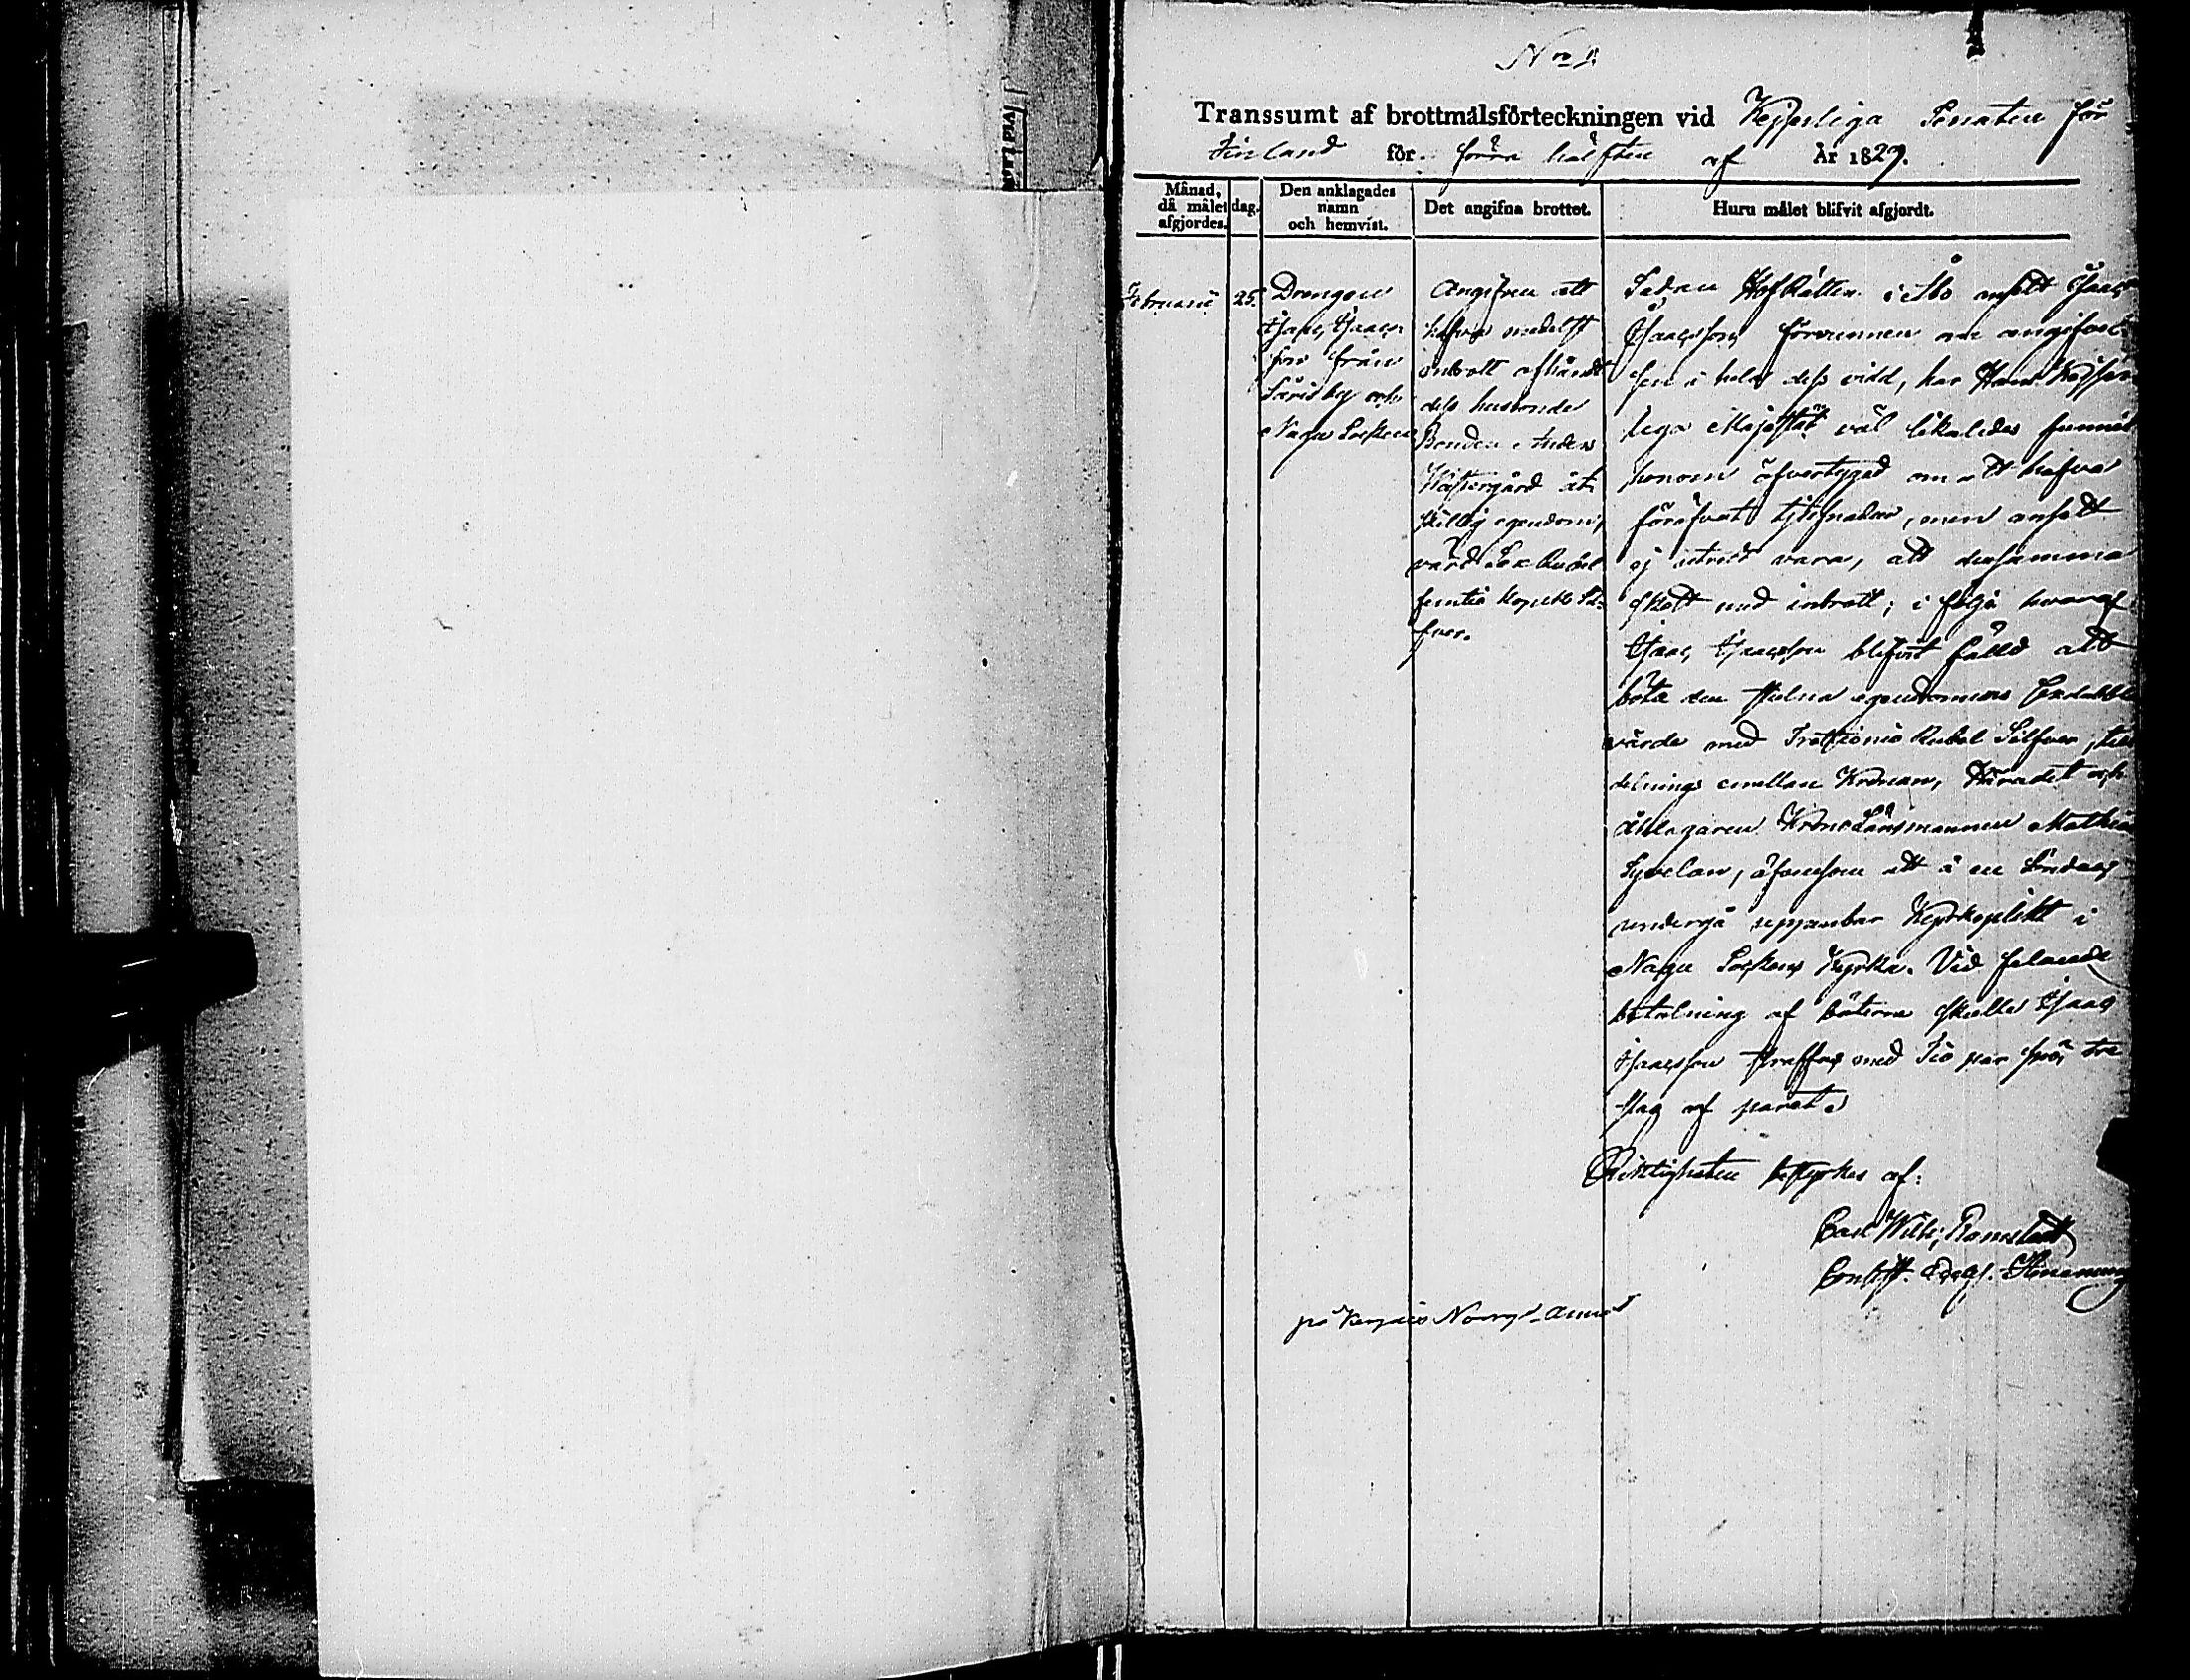 No 1.
Transsumt af brottmålsförteckningen vid Kejserliga Senaten för
Finland för förra hälften af År 1829.
Månad, då målet afgjordes.
dag.
Den anklagades namn och hemvist.
Det angifna brottet.
Huru målet blifvit afgjordt.
Februarii
25.
Drengen
Isaac Isaacs
son från
Särisby och
Nagu Socken
Angifven att
hafva medelst
inbrott afhändt
dess husbonde
Bonden Anders
Westergård åt-
skillig egendom,
värd Sex Rubel
femtio kopek Sil-
fver.
Sedan HofRätten i Åbo ansett Isaac
Isaacsson förvunnen om angifvel-
sen i hela dess vidd, har Hans Kejser-
liga Majestät väl likaledes funnit
honom öfvertygad om att hafva
föröfvat tjufnaden, men ansett
ej utredt vara, att densamma
skett med inbrott; i följe hvaraf
Isaac Isaacsson blifvit fälld att
böta den stulna egendomens
värde med Trettionio Rubel Silfver, till
delning emellan Kronan, Häradet och
åklagaren KronoLänsmannen Mathias
Sevelan, äfvensom att å en Söndag
undergå uppenbar Kyrkoplikt i
Nagu Sockens Kyrka. Vid felande
betalning af böterne skulle Isaac
Isaacsson straffas med Tio par spö, tre
slag af paret.
Riktigheten bestyrkes af:
Carl Wilh:
på